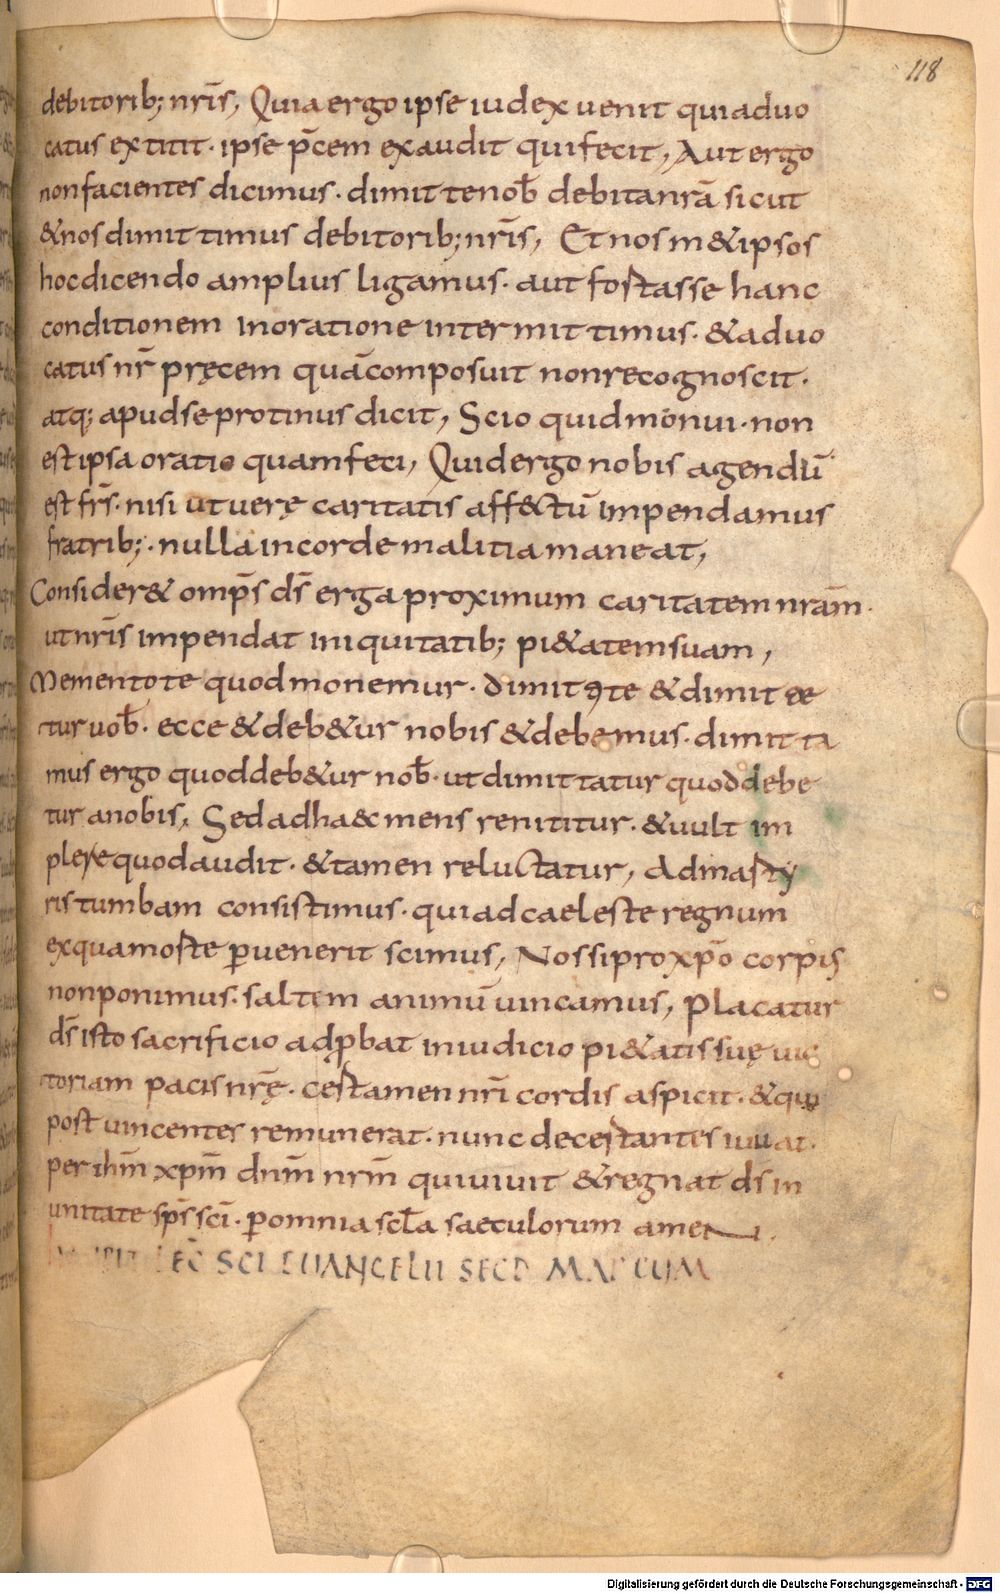 118
debitorib; nr̄is, Quia ergo ipse iudex uenit qui aduo
catus extitit · ipse p̄cem exaudit qui fecit, Aut ergo
non facientes dicimus · dimitte nob̄ debita nr̄a sicut
& nos dimittimus debitorib; nr̄is, Et nosm&ipsos
hoc dicendo amplius ligamus · aut fortasse hanc
conditionem in oratione intermittimus · & aduo
catus nr̄ pręcem quā composuit non recognoscit ·
atq; apud se protinus dicit, Scio quid monui · non
est ipsa oratio quam feci, Quid ergo nobis agendū
est fr̄s · nisi ut uerę caritatis aff&ctū impendamus
fratrib; · nulla in corde malitia maneat,
Consider& omp̄s d̄s erga proximum caritatem nr̄am ·
ut nr̄is impendat iniquitatib; pi&atem suam,
Mementote quod monemur · dimitꝯte & dimitte
tur uob̄ · ecce & deb&ur nobis & debemus · dimitta
mus ergo quod deb&ur nob̄ · ut dimittatur quod debe
tur a nobis, Sed ad ha&c mens renititur · & uult im
plere quod audit · & tamen reluctatur, Ad marty
ris tumbam consistimus · qui ad caeleste regnum
ex qua morte ꝑuenerit scimus, Nos si pro xp̄o corpis
non ponimus · saltem animū uincamus, Placatur
d̄s isto sacrificio adꝓbat in iudicio pi&atis suę uic
toriam pacis nr̄ę · certamen nr̄i cordis aspicit · & qui
post uincentes remunerat · nunc decertantes iuuat ·
per ih̄m xp̄m dn̄m nr̄m qui uiuit & regnat d̄s in
unitate sp̄s sc̄i · ꝑ omnia sc̄la saeculorum amen.
LEC̄ SCI EUANGELII SECD MARCUM
Digitalisierung gefördert durch die Deutsche Forschungsgemeinschaft - DFG